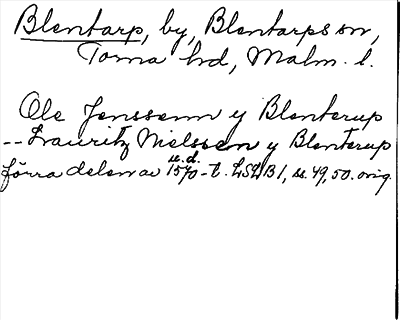 Blentarp, by, Blentarps sn,
Torna hd, Malm. l.
Ole Jenssenn y Blenterup
-- Lauritz Nielssen y Blenterup
u. d.
förra delen av 1570-t. LSLB1, s. 49, 50. orig.